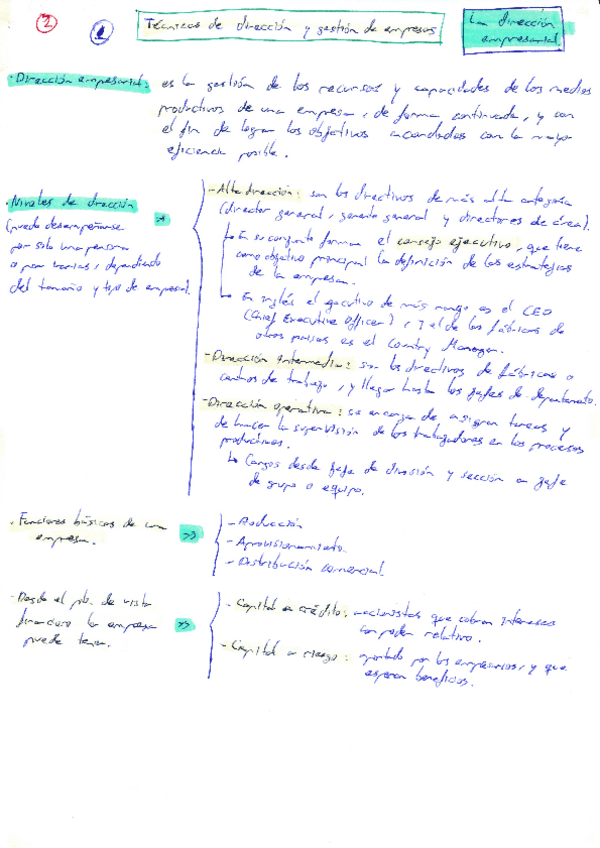 2
1
Técnicas de dirección y gestión de empresas
La dirección
empresarial.
· Dirección empresarial: es la gestión de los recursos y capacidades de los medios
productivos de una empresa, de forma continuada, y con
el fin de lograr los objetivos acordados con la mayor
eficiencia posible.
· Niveles de dirección
(puede desempeñarse
por solo una persona
o por varias, dependiendo
del tamaño y tipo de empresa).
- Alta dirección: son los directivos de más alta categoría
(director general, gerente general y directores de área).
↳ En su conjunto forman el consejo ejecutivo, que tiene
como objetivo principal la definición de las estrategias
de la empresa.
↳ En inglés el ejecutivo de más rango es el CEO
(Chief Executive Officer), y el de las fábricas de
otros países es el Country Manager.
- Dirección intermedia: son los directivos de fábricas o
centros de trabajo, y llegan hasta los jefes de departamento.
- Dirección operativa: se encarga de asignar tareas y
de la supervisión de los trabajadores en los procesos
productivos.
↳ Cargos desde jefe de división y sección a jefe
de grupo o equipo.
· Funciones básicas de una
empresa.
- Producción
- Aprovisionamiento.
- Distribución comercial.
· Desde el pto. de vista
financiero la empresa
puede tener.
- Capital a crédito: accionistas que cobran intereses
con poder relativo.
- Capital a riesgo: aportado por los empresarios, y que
esperan beneficios.